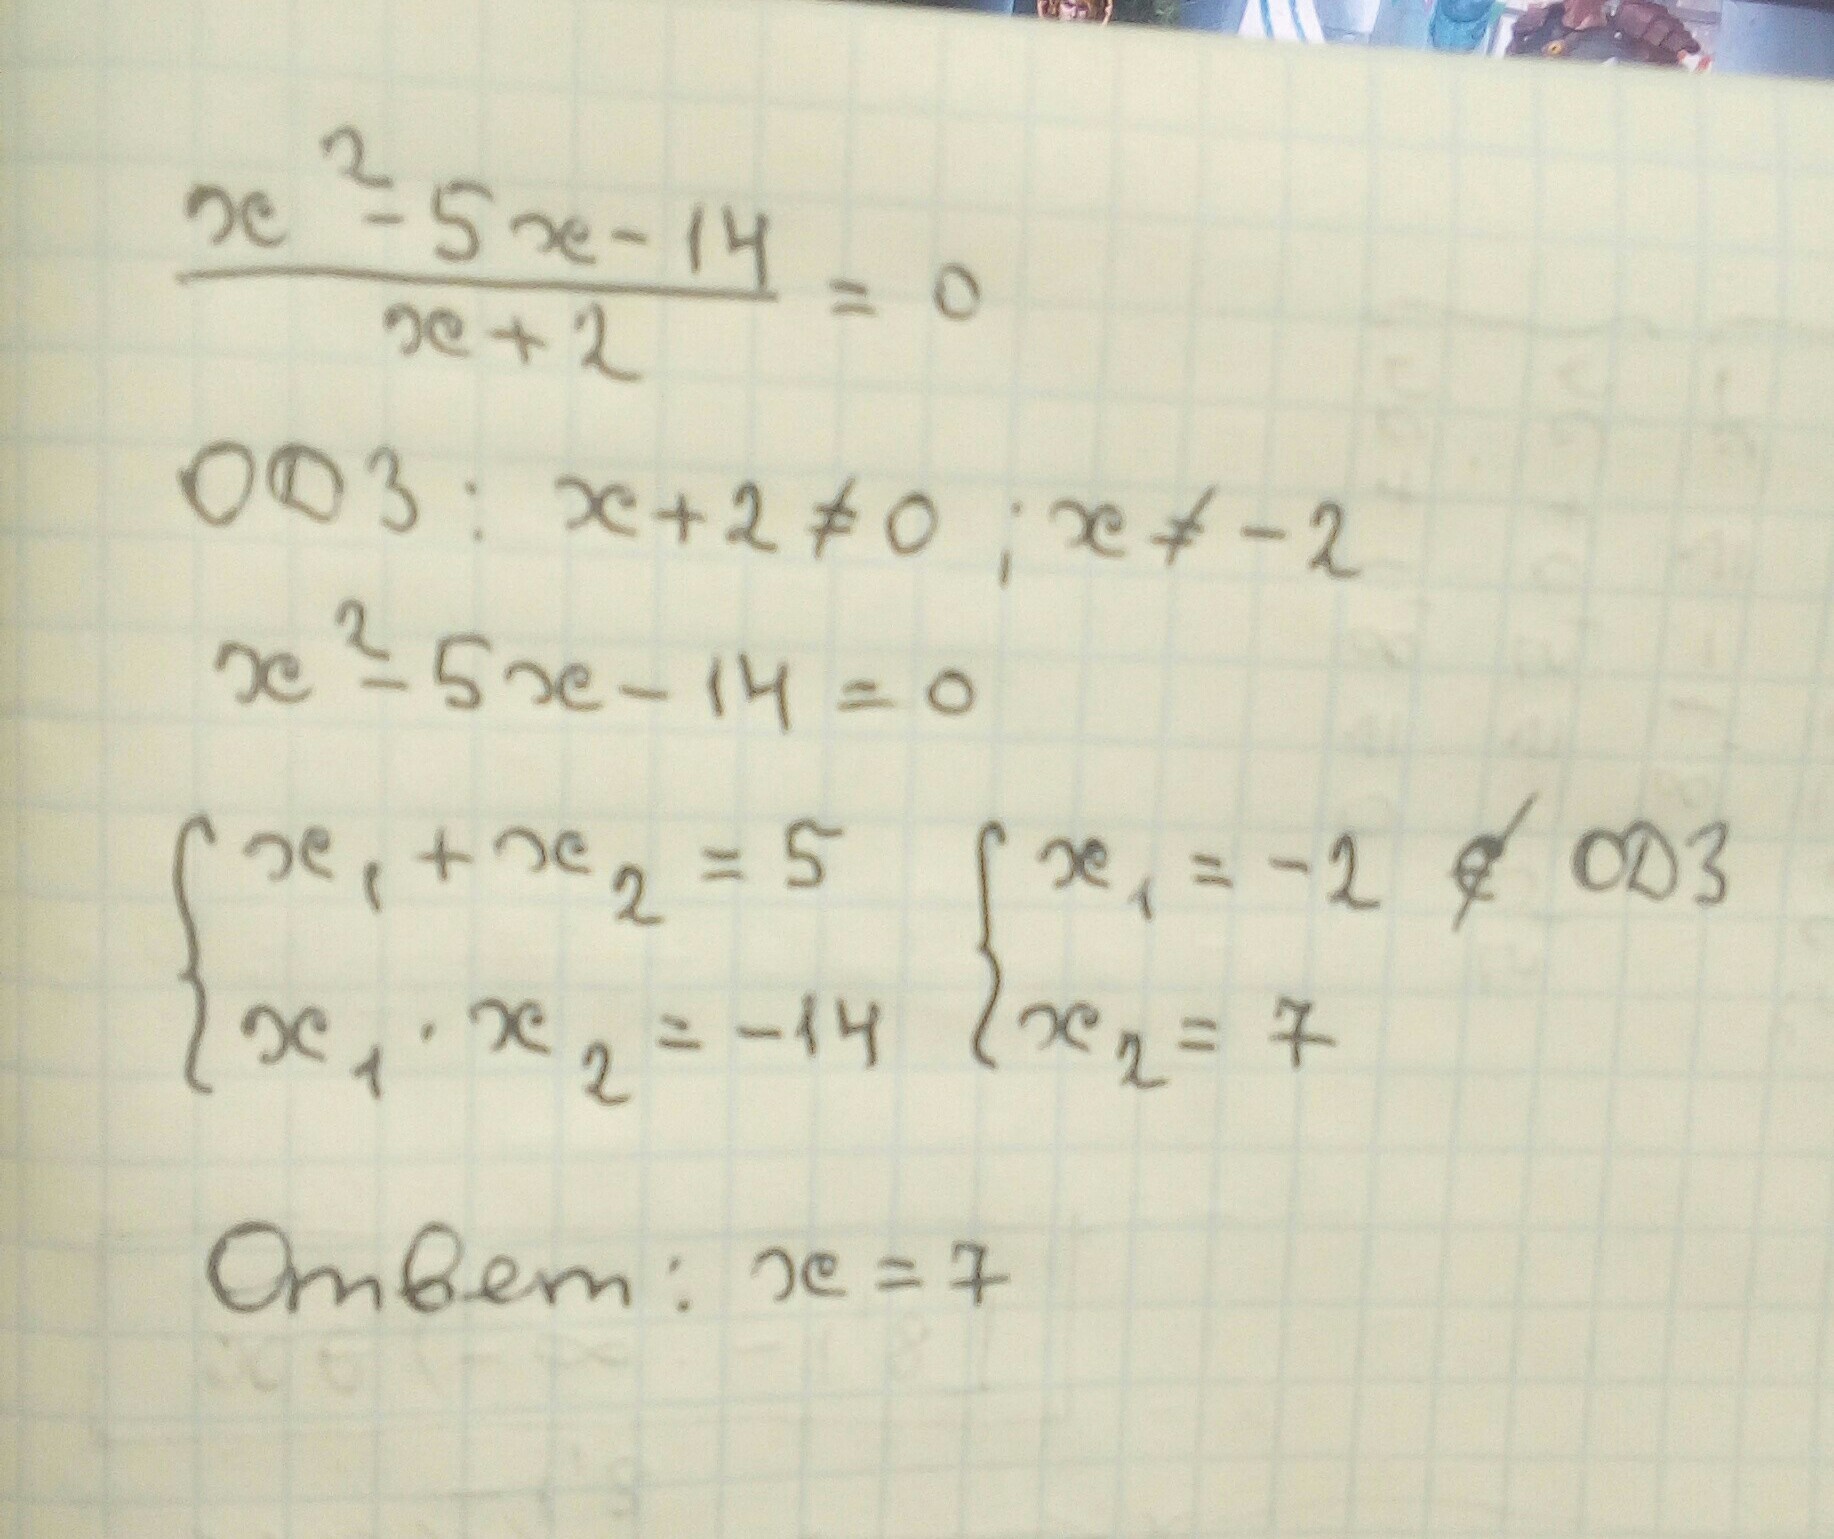 x² - 5x - 14
x + 2
= 0
ОДЗ: x + 2 ≠ 0 ; x ≠ -2
x² - 5x - 14 = 0
{ x₁ + x₂ = 5 { x₁ = -2 ∉ ОДЗ
x₁ · x₂ = -14 x₂ = 7
Ответ: x = 7